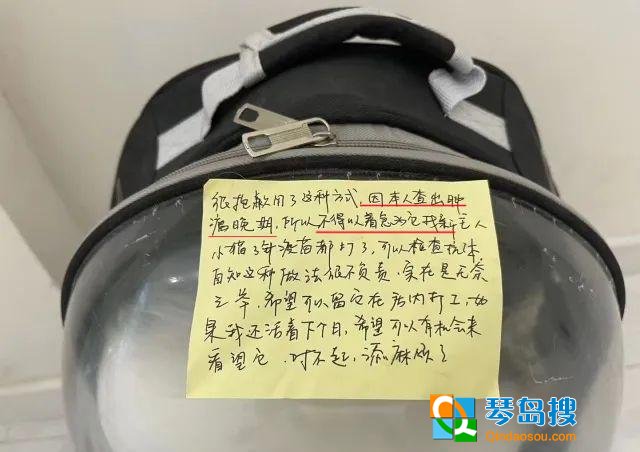 很抱歉用了这种方式,因本人查出肿
瘤晚期,所以不得以着急为它找新主人
小猫3针疫苗都打了,可以检查抗体
自知这种做法很不负责,实在是无奈
之举,希望可以留它在店内打工,如
果我还活着下个月,希望可以有机会来
看望它,对不起,添麻烦了
琴岛搜
qindaosou.com